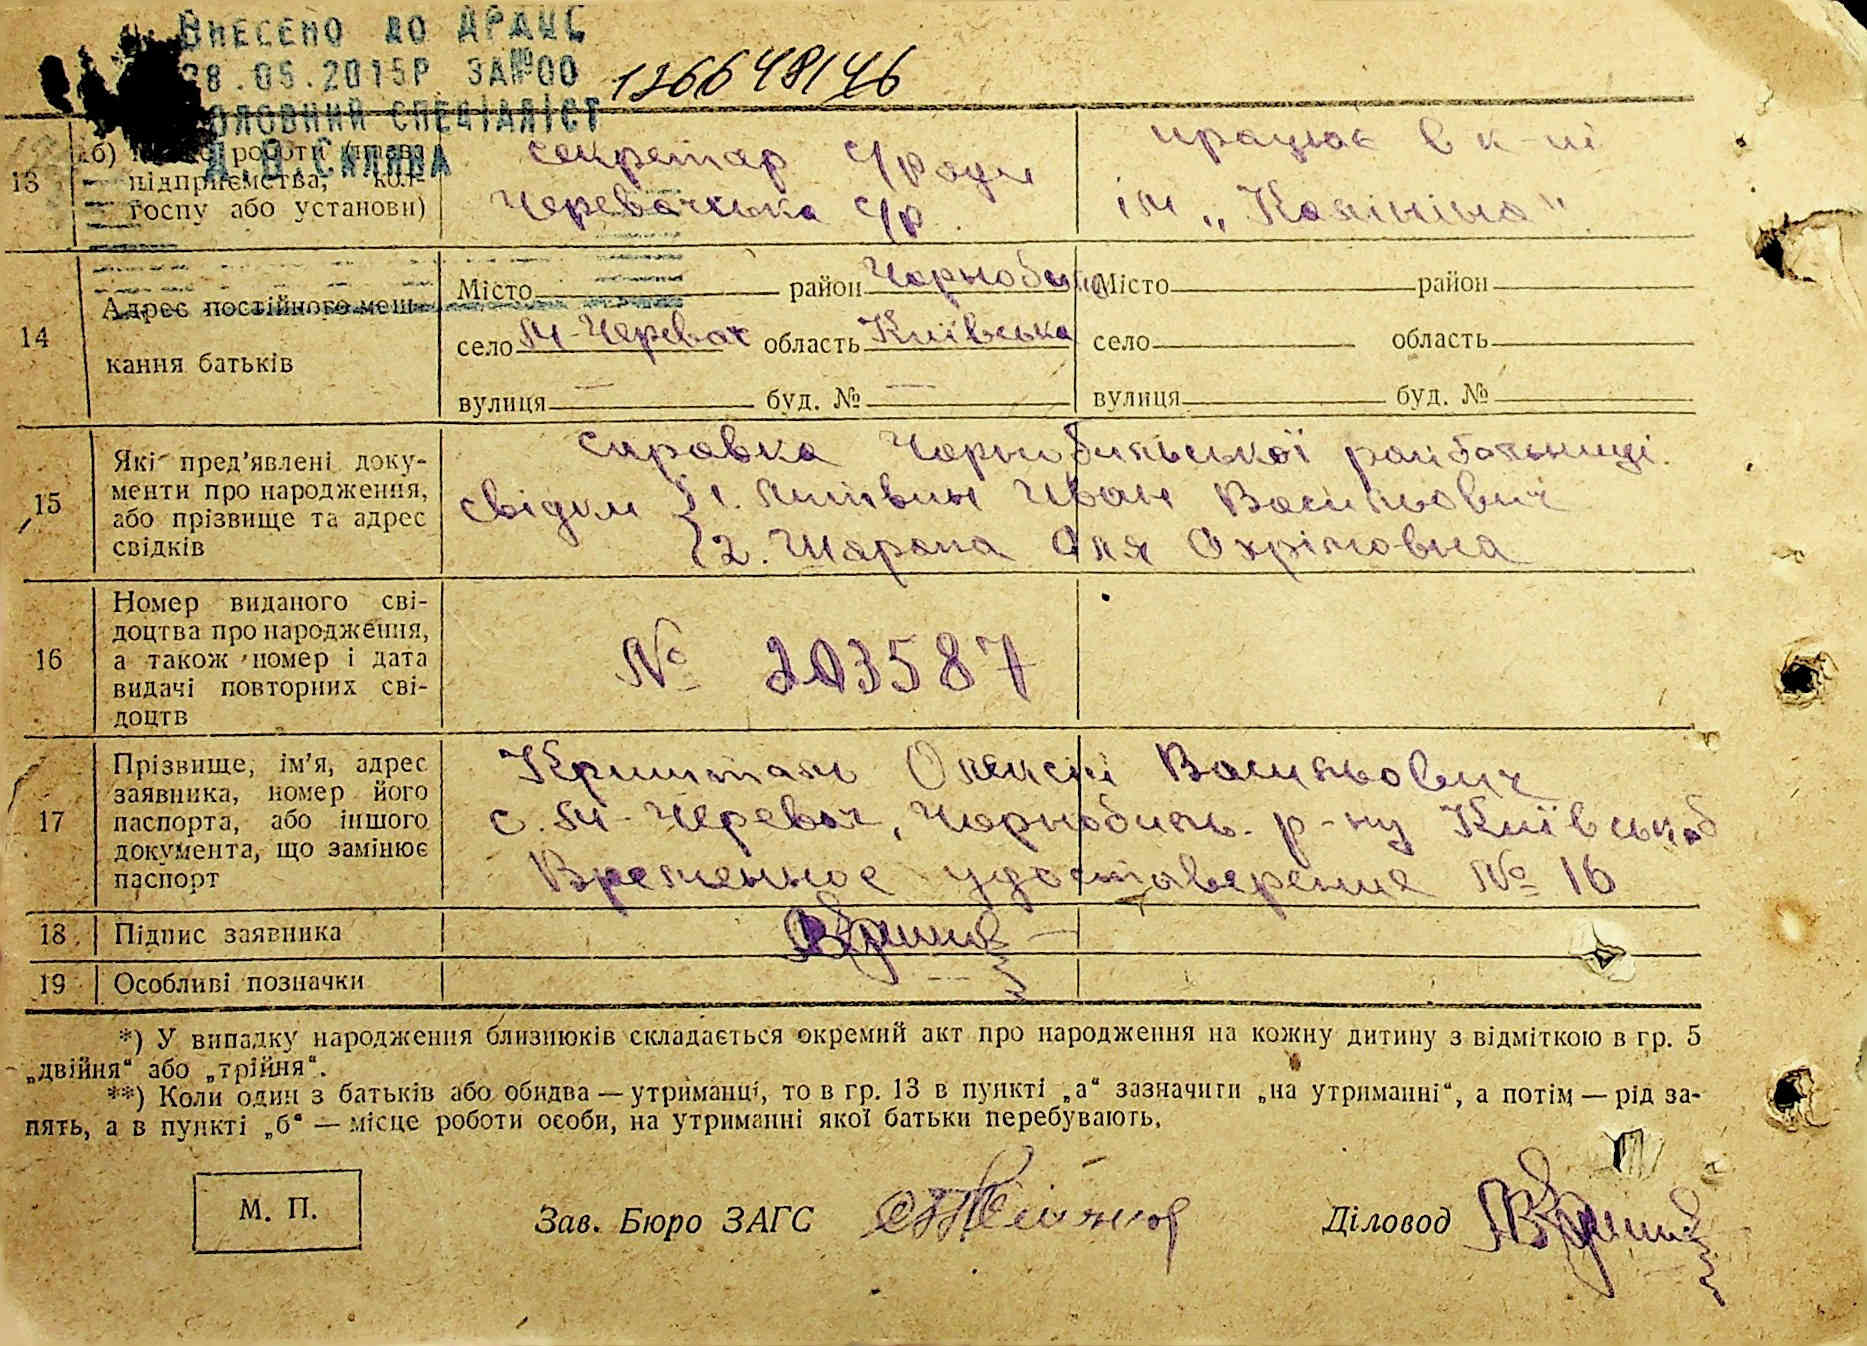 ВНЕСЕНО ДО ДРАЦС
28.05.2015Р ЗА№00 126648146
ГОЛОВНИЙ СПЕЦІАЛІСТ
Д.В.СКЛЯВА
13 б) роботи (назва підприємства, кол-
госпу або установи)
секретар с/ради
Черевачська с/р
працює в к-пі
ім „Калініна"
14 Адрес постійного меш-
кання батьків
Місто район Чорнобиль
село М-Черевач область Київська
вулиця — буд. № —
Місто район
село область
вулиця буд. №
15 Які пред'явлені доку-
менти про народження,
або прізвище та адрес
свідків
справка Чорнобильської райбольниці.
свідки 1. Литвин Иван Васильович
2. Шарапа Оля Охрімовна
16 Номер виданого сві-
доцтва про народження,
а також номер і дата
видачі повторних сві-
доцтв
№ 203587
17 Прізвище, ім'я, адрес
заявника, номер його
паспорта, або іншого
документа, що замінює
паспорт
Кришталь Олексій Васильович
с. М-Черевач, Чорнобиль. р-ну Київської
Временное удостоверение № 16
18 Підпис заявника
19 Особливі позначки
*) У випадку народження близнюків складається окремий акт про народження на кожну дитину з відміткою в гр. 5
„двійня“ або „трійня“.
**) Коли один з батьків або обидва — утриманці, то в гр. 13 в пункті „а“ зазначити „на утриманні“, а потім — рід за-
нять, а в пункті „б“ — місце роботи особи, на утриманні якої батьки перебувають.
М. П. Зав. Бюро ЗАГС Діловод